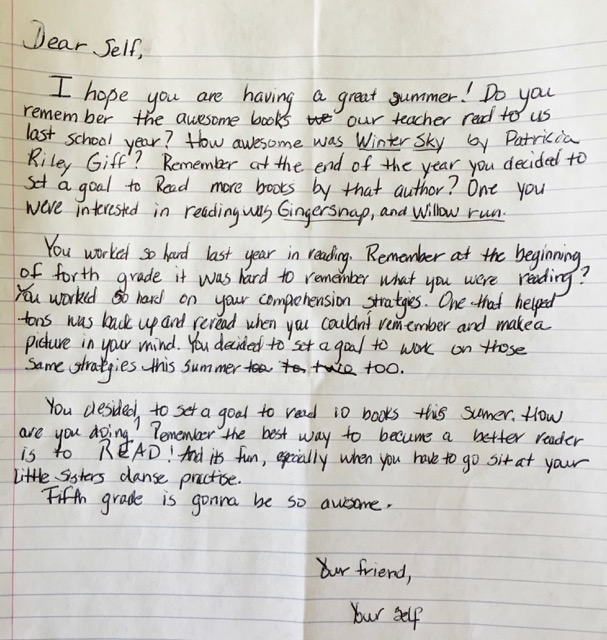 Dear Self,
I hope you are having a great summer! Do you
remember the awesome books we our teacher read to us
last school year? How awesome was Winter Sky by Patricia
Riley Giff? Remember at the end of the year you decided to
set a goal to Read more books by that author? One you
were interested in reading was Gingersnap, and Willow run.
You worked so hard last year in reading. Remember at the beginning
of forth grade it was hard to remember what you were reading?
You worked so hard on your comprehension stratgies. One that helped
tons was back up and reread when you couldn't remember and make a
picture in your mind. You decided to set a goal to work on those
same stratgies this summer too to two too.
You desided, to set a goal to read 10 books this sumer. How
are you doing? Remember the best way to become a better reader
is to READ! And its fun, epecially when you have to go sit at your
little sisters danse practise.
Fifth grade is gonna be so awsome.
Your friend,
Your self